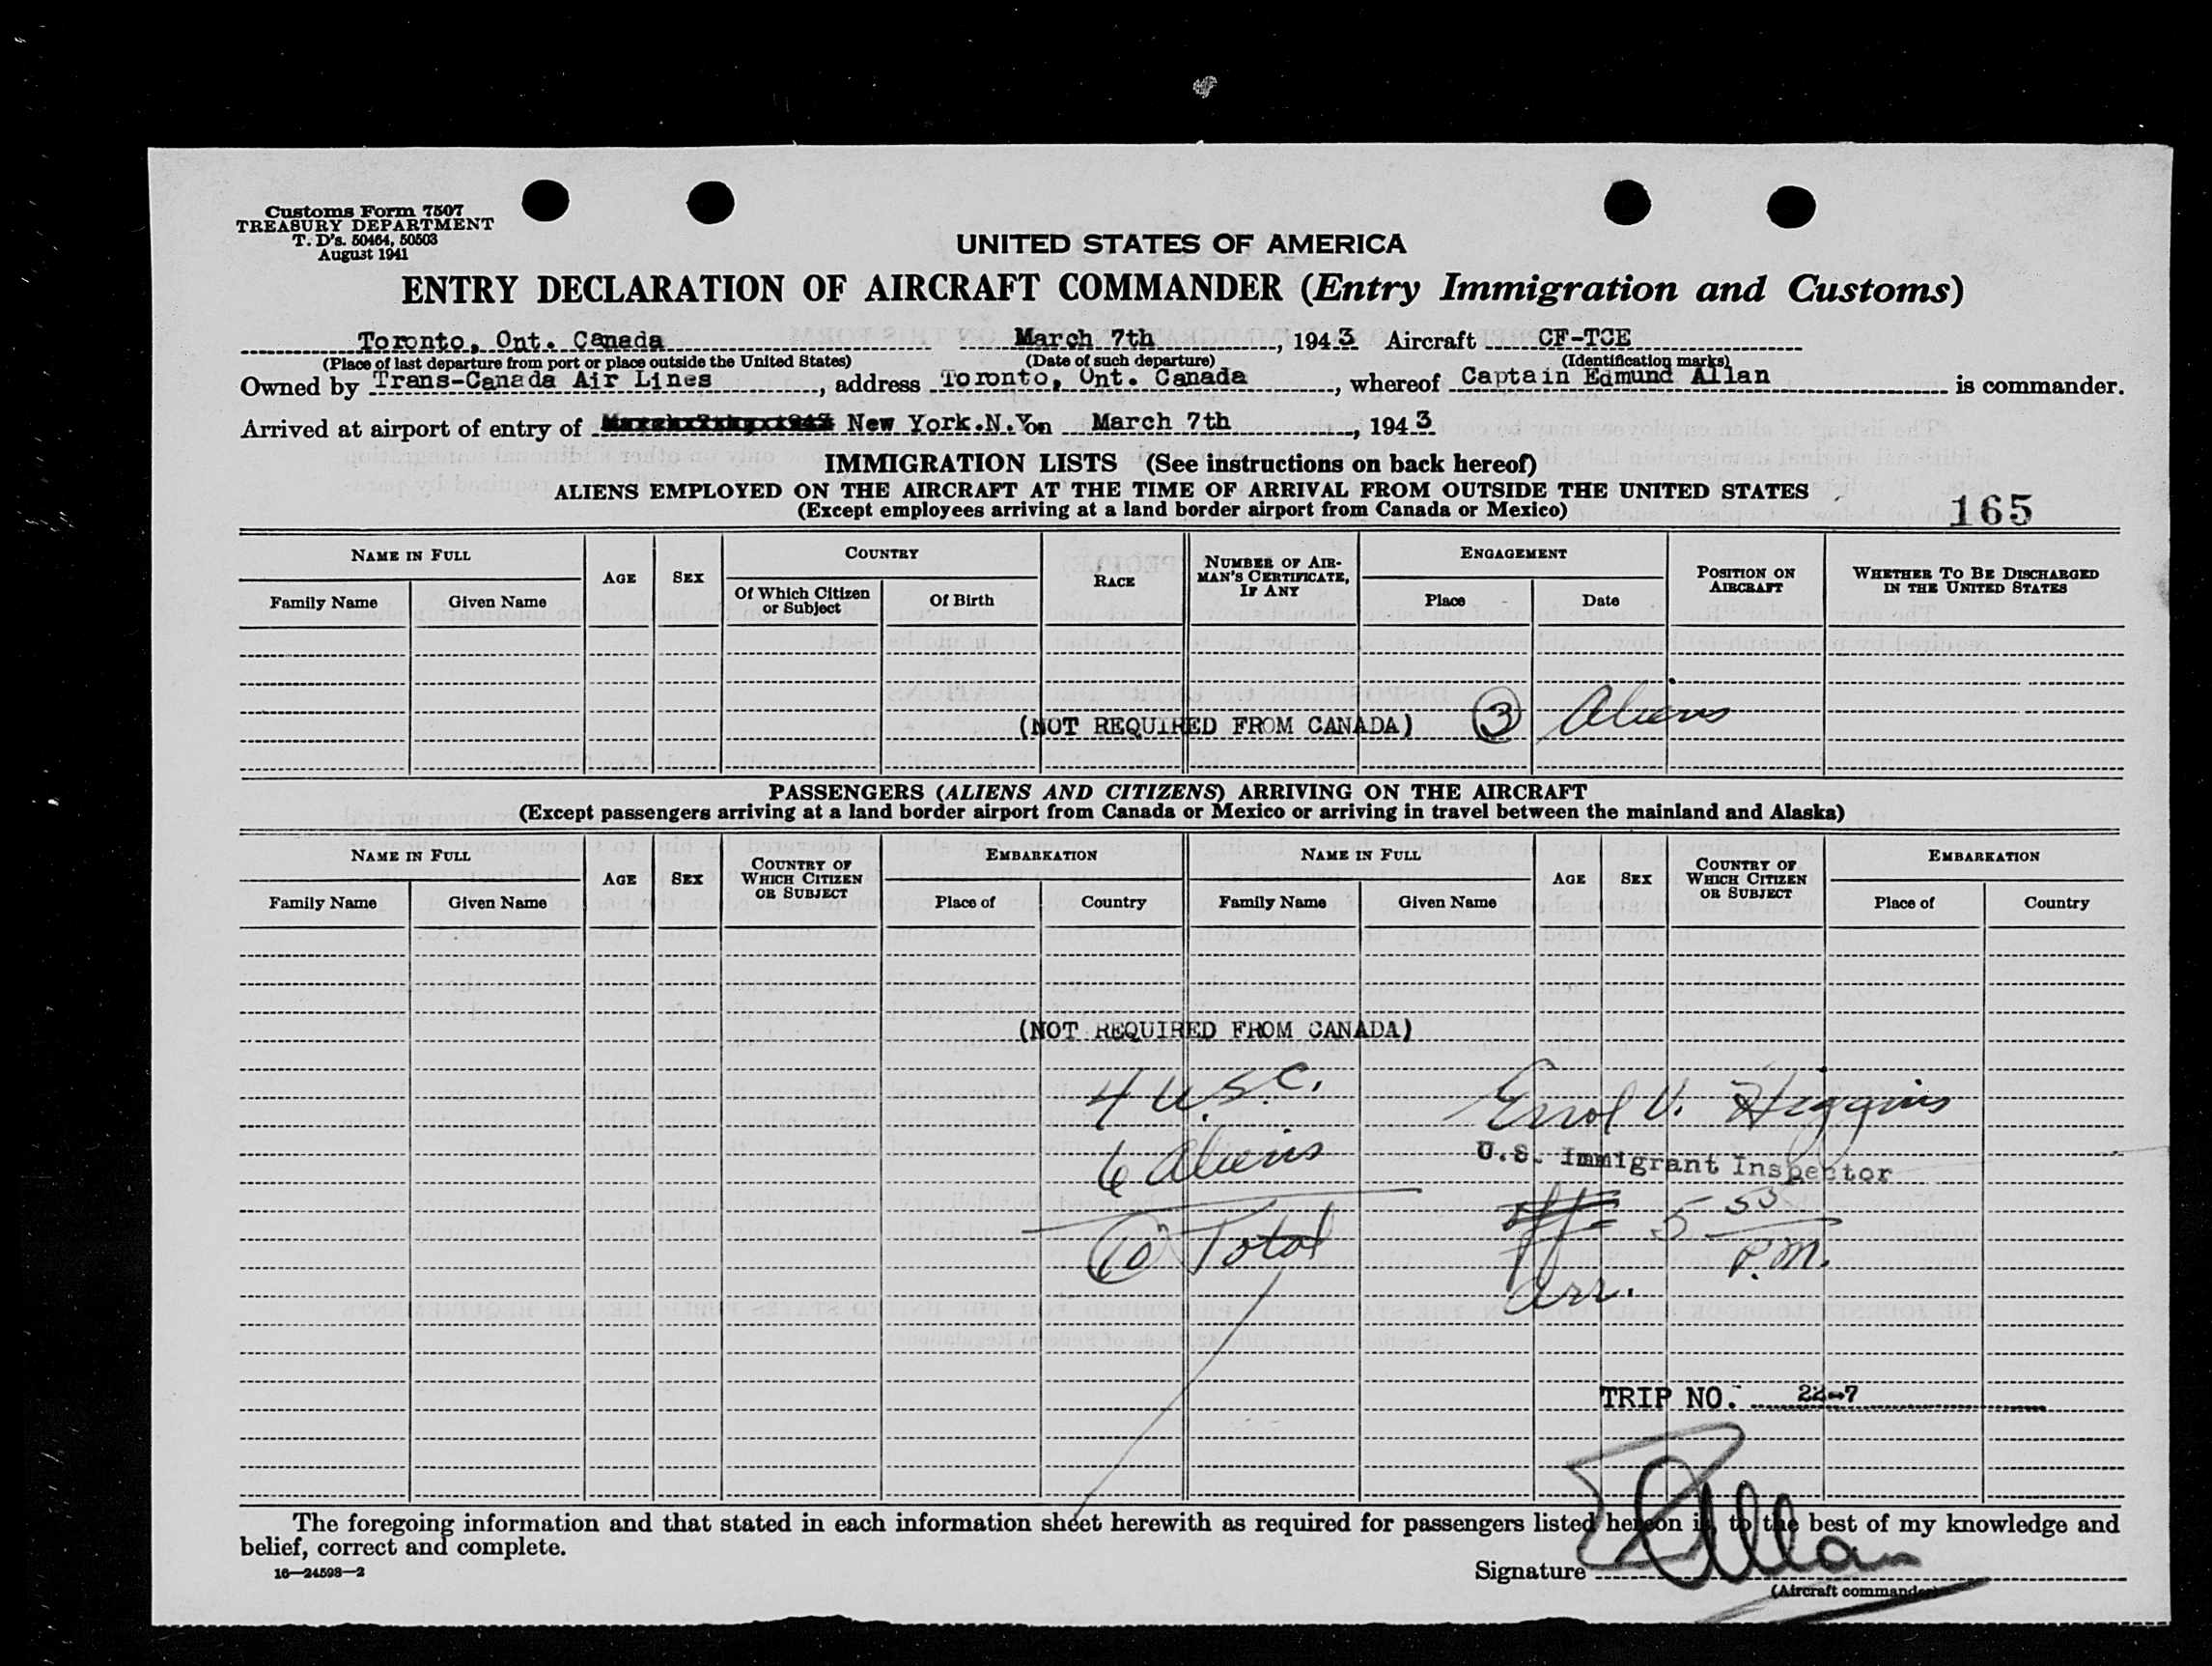 Customs Form 7507
TREASURY DEPARTMENT
T. D's. 50464, 50503
August 1941
UNITED STATES OF AMERICA
ENTRY DECLARATION OF AIRCRAFT COMMANDER (Entry Immigration and Customs)
Toronto, Ont. Canada March 7th, 1943 Aircraft CF-TCE
(Place of last departure from port or place outside the United States) (Date of such departure) (Identification marks)
Owned by Trans-Canada Air Lines, address Toronto, Ont. Canada, whereof Captain Edmund Allan is commander.
Arrived at airport of entry of New York.N.Y. on March 7th, 1943
IMMIGRATION LISTS (See instructions on back hereof)
ALIENS EMPLOYED ON THE AIRCRAFT AT THE TIME OF ARRIVAL FROM OUTSIDE THE UNITED STATES
(Except employees arriving at a land border airport from Canada or Mexico)
165
NAME IN FULL AGE SEX COUNTRY RACE NUMBER OF AIRMAN'S CERTIFICATE, IF ANY ENGAGEMENT POSITION ON AIRCRAFT WHETHER TO BE DISCHARGED IN THE UNITED STATES
Family Name Given Name Of Which Citizen or Subject Of Birth Place Date
(NOT REQUIRED FROM CANADA) 3 Aliens
PASSENGERS (ALIENS AND CITIZENS) ARRIVING ON THE AIRCRAFT
(Except passengers arriving at a land border airport from Canada or Mexico or arriving in travel between the mainland and Alaska)
NAME IN FULL AGE SEX COUNTRY OF WHICH CITIZEN OR SUBJECT EMBARKATION NAME IN FULL AGE SEX COUNTRY OF WHICH CITIZEN OR SUBJECT EMBARKATION
Family Name Given Name Place of Country Family Name Given Name Place of Country
(NOT REQUIRED FROM CANADA)
4 U.S.C. Errol V. Higgins
6 Aliens U.S. Immigrant Inspector
10 Total 5 53 P.M.
Arr.
TRIP NO. 22-7
The foregoing information and that stated in each information sheet herewith as required for passengers listed hereon is, to the best of my knowledge and
belief, correct and complete.
16—24598—2
Signature E Allan
(Aircraft commander)